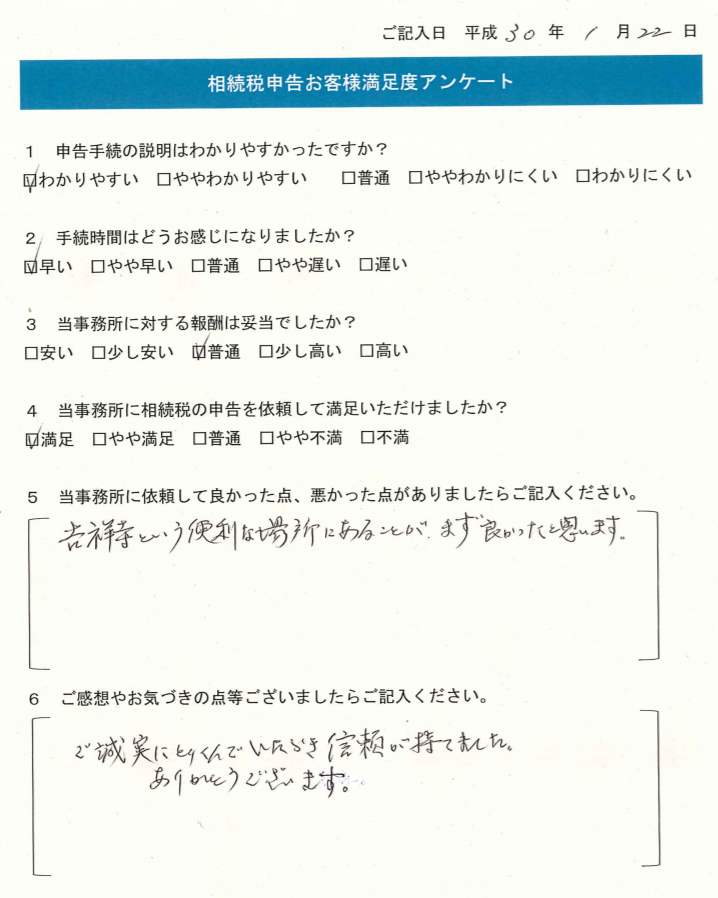 ご記入日 平成 30 年 1 月 22 日
相続税申告お客様満足度アンケート
1 申告手続の説明はわかりやすかったですか？
☑わかりやすい □ややわかりやすい □普通 □ややわかりにくい □わかりにくい
2 手続時間はどうお感じになりましたか？
☑早い □やや早い □普通 □やや遅い □遅い
3 当事務所に対する報酬は妥当でしたか？
□安い □少し安い ☑普通 □少し高い □高い
4 当事務所に相続税の申告を依頼して満足いただけましたか？
☑満足 □やや満足 □普通 □やや不満 □不満
5 当事務所に依頼して良かった点、悪かった点がありましたらご記入ください。
吉祥寺という便利な場所にあることが、まず良かったと思います。
6 ご感想やお気づきの点等ございましたらご記入ください。
ご誠実にとりくんでいただき信頼が持てました。
ありがとうございます。